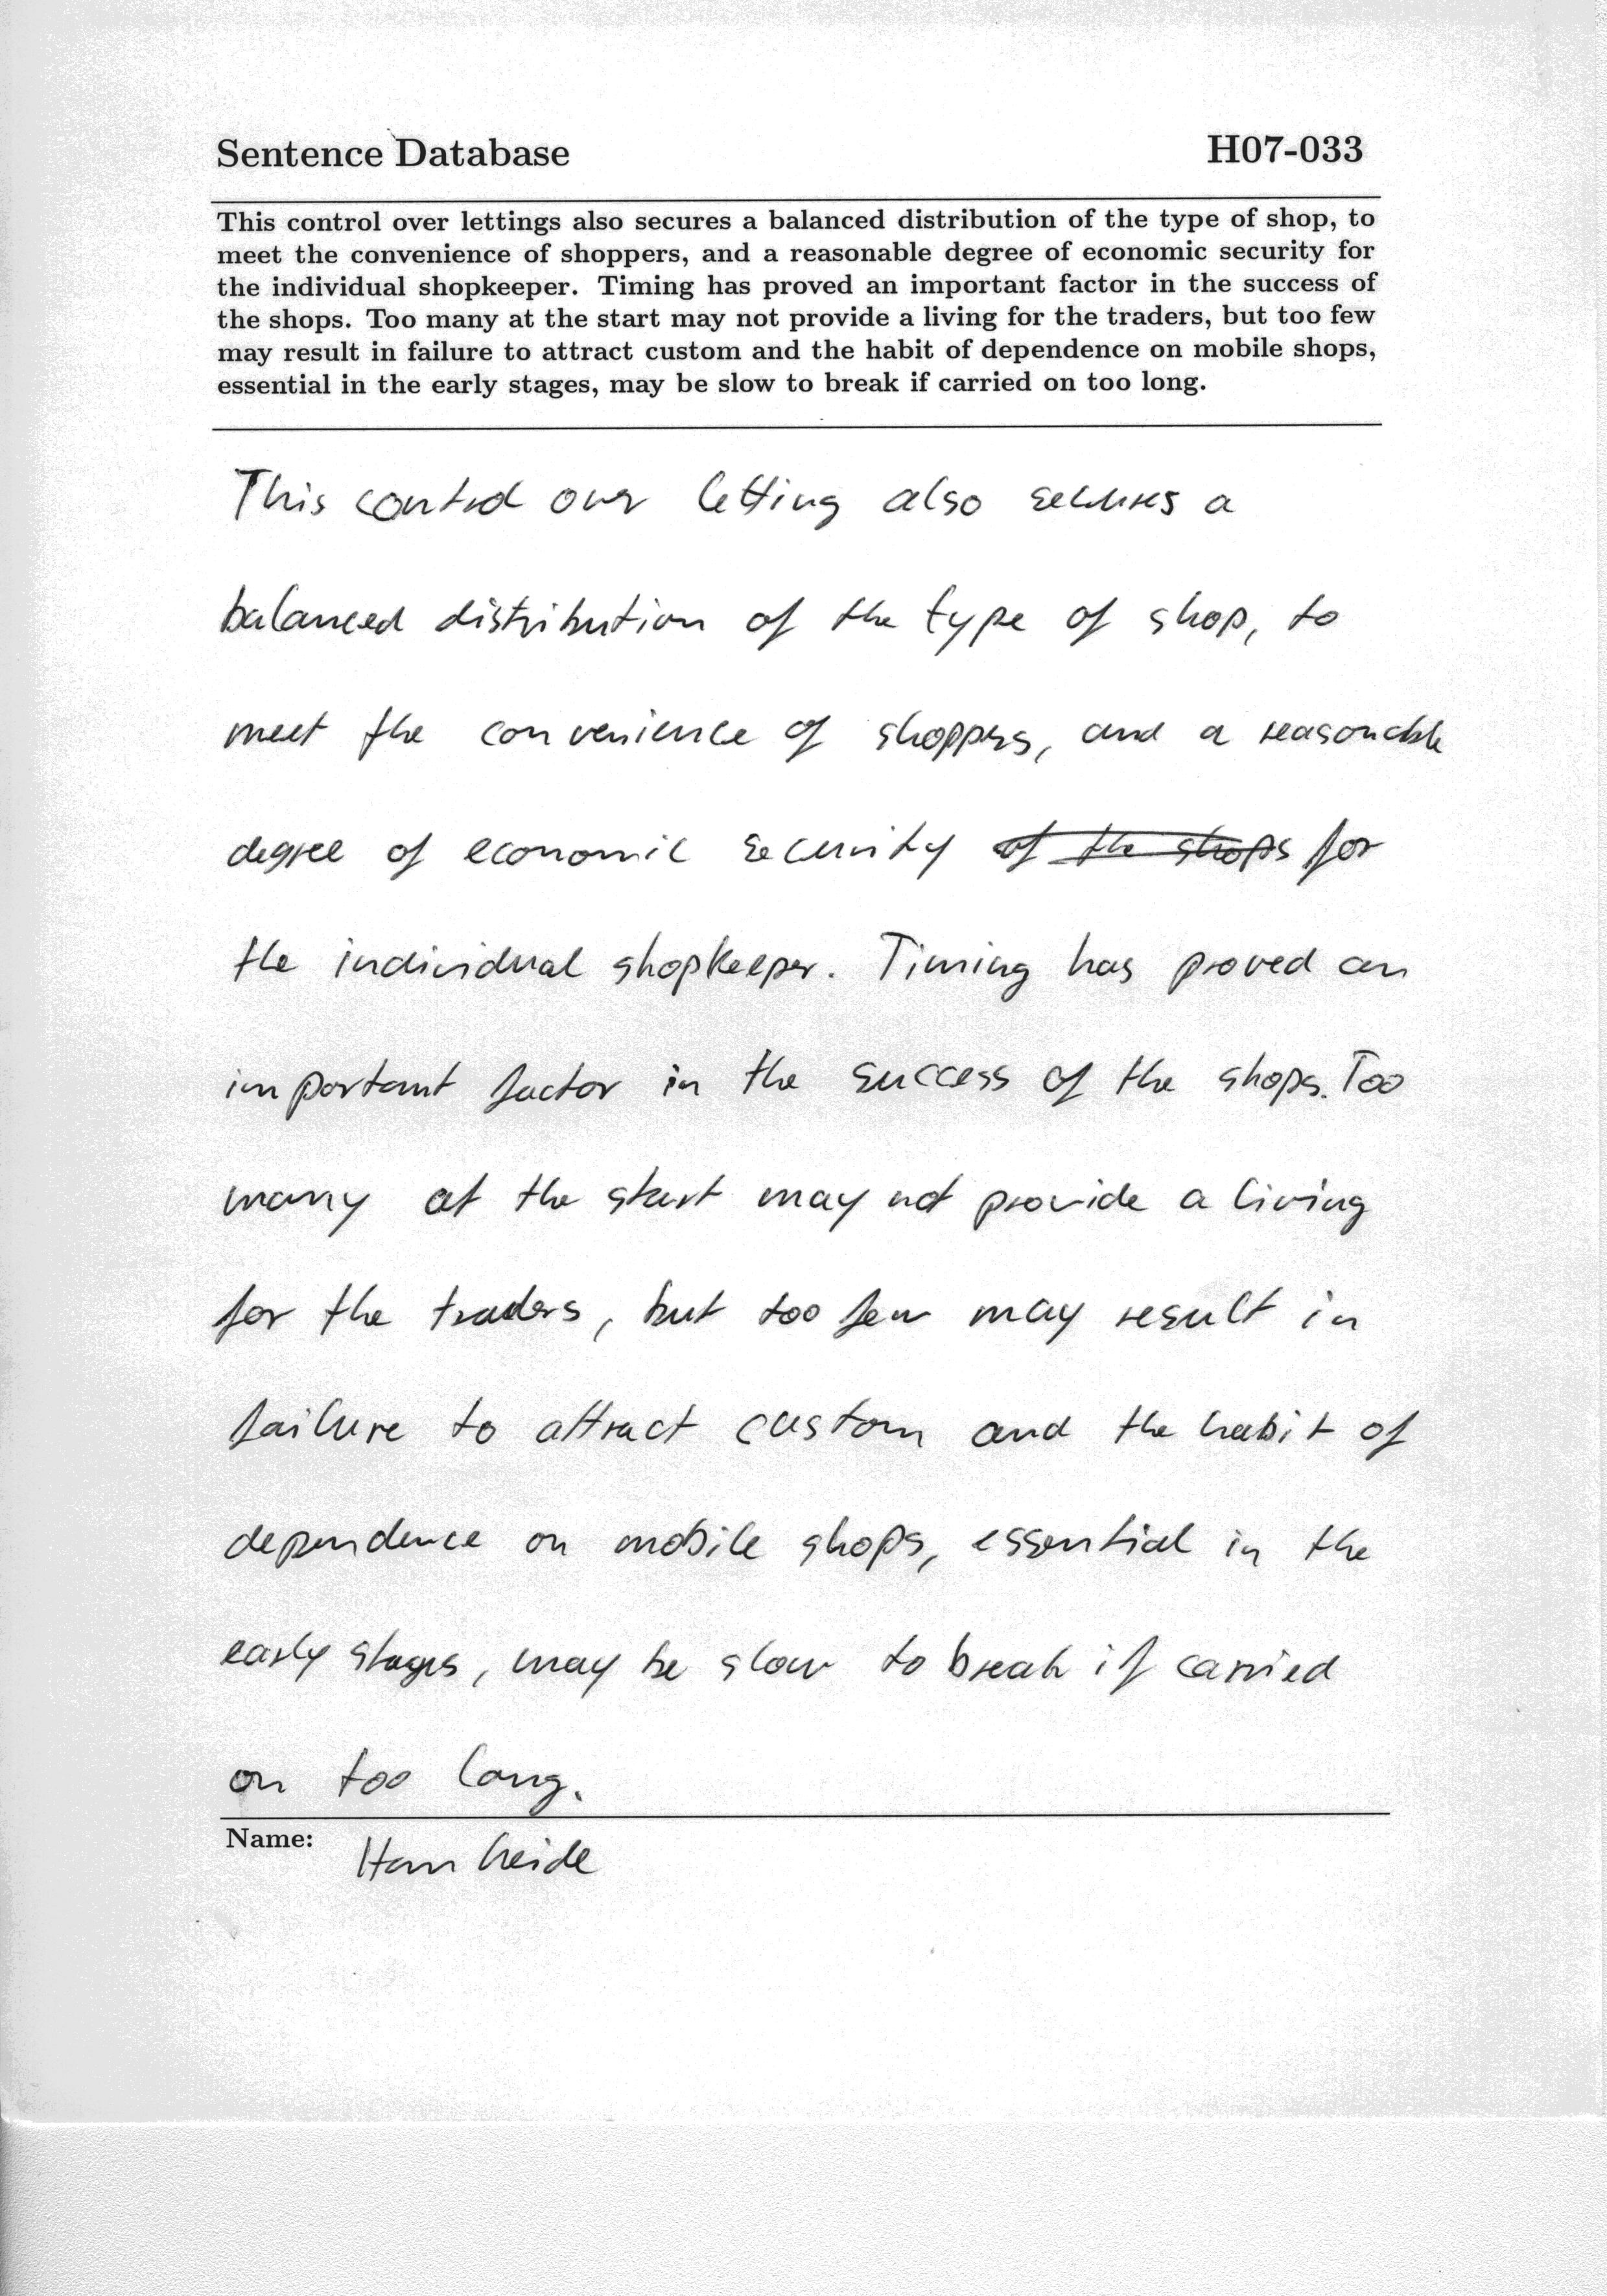 Sentence Database H07-033
This control over lettings also secures a balanced distribution of the type of shop, to
meet the convenience of shoppers, and a reasonable degree of economic security for
the individual shopkeeper. Timing has proved an important factor in the success of
the shops. Too many at the start may not provide a living for the traders, but too few
may result in failure to attract custom and the habit of dependence on mobile shops,
essential in the early stages, may be slow to break if carried on too long.
This control over letting also secures a
balanced distribution of the type of shop, to
meet the convenience of shoppers, and a reasonable
degree of economic security of the shops for
the individual shopkeeper. Timing has proved an
important factor in the success of the shops. Too
many at the start may not provide a living
for the traders, but too few may result in
failure to attract custom and the habit of
dependence on mobile shops, essential in the
early stages, may be slow to break if carried
on too long.
Name: